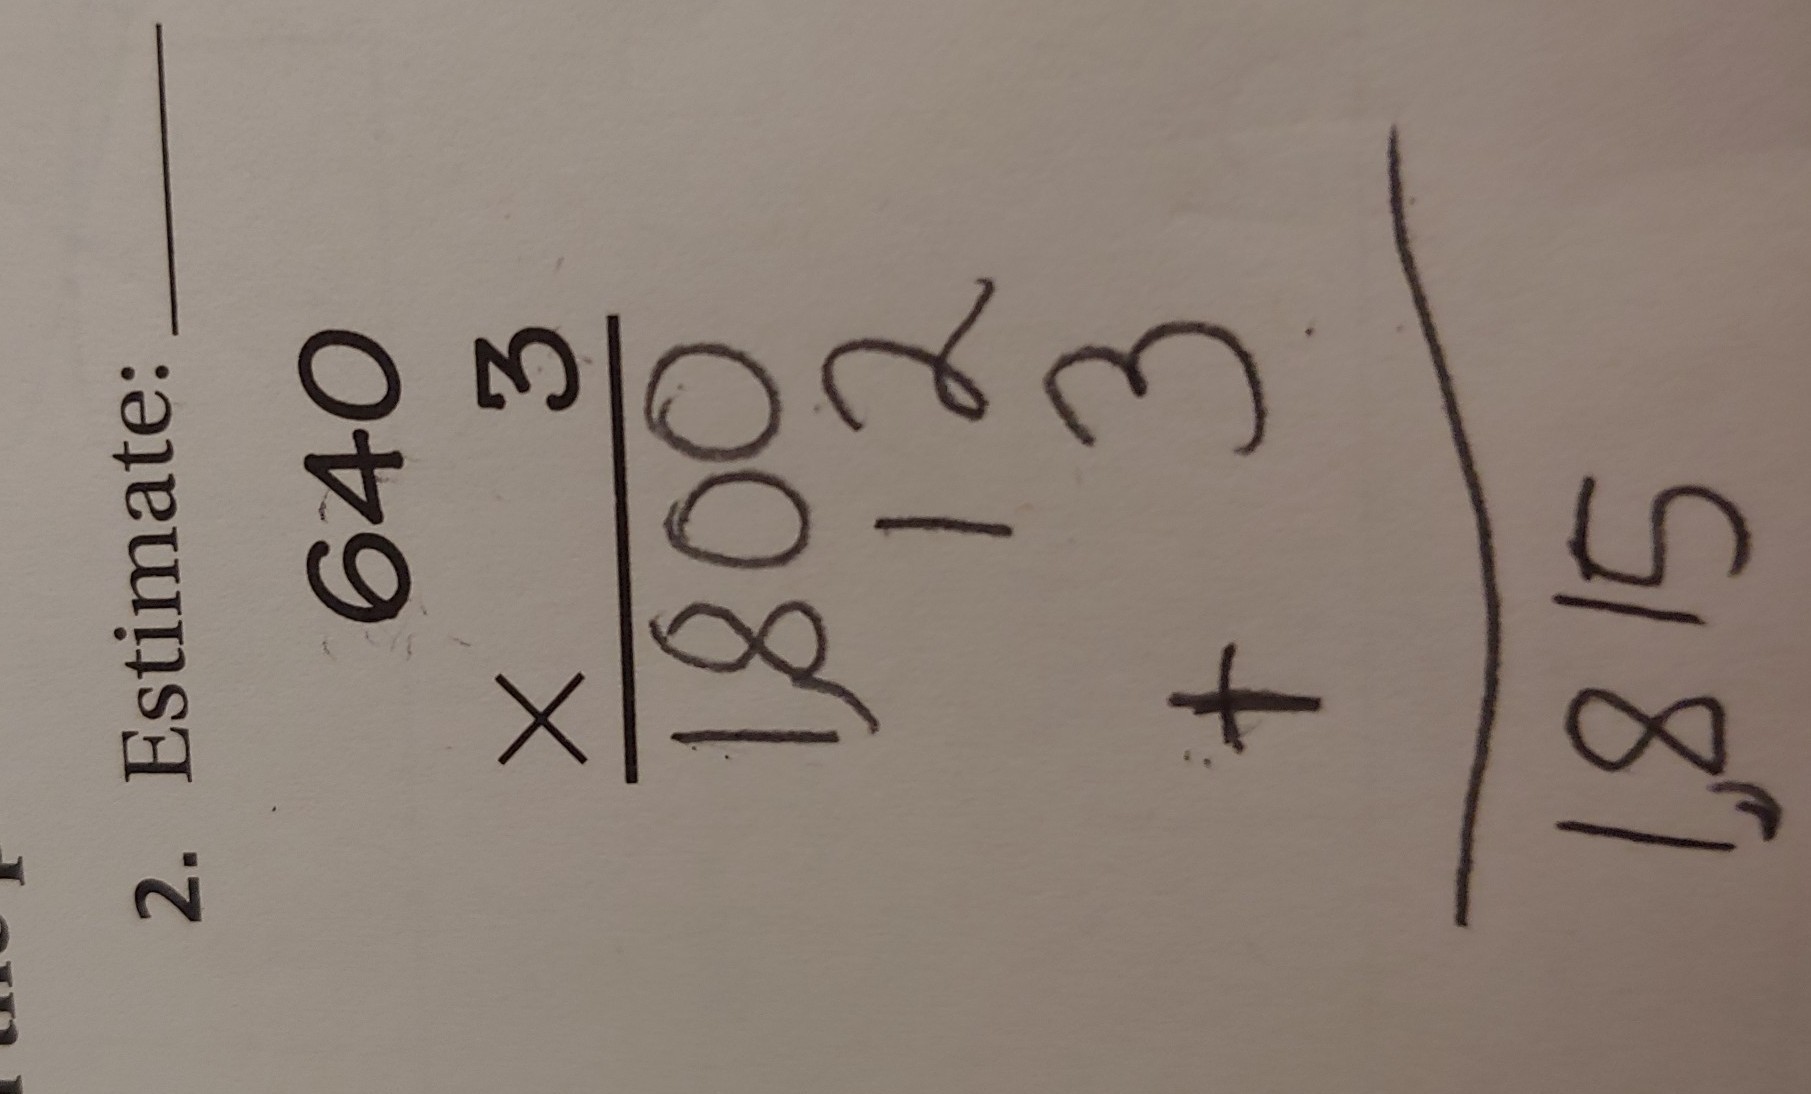 2. Estimate: ________
640
× 3
1,800
12
+ 3
1,815